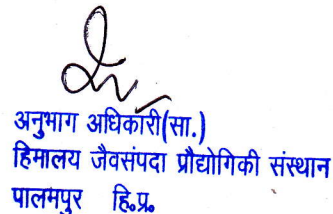 अनुभाग अधिकारी(सा.)
हिमालय जैवसंपदा प्रौद्योगिकी संस्थान
पालमपुर हि.प्र.